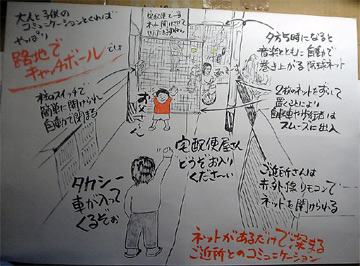 大人と子供の
コミュニケーションとくれば
やっぱり
路地で
キャッチボール
でしょ
宅配便で〜す
ネット開けて
夕方5時になると
音楽とともに自動で
巻き上がる防球ネット
枚のスイッチで
簡単に開けられ
自動で閉まる
お父さーん
2枚のネットを
置くことにより
自転車や歩行者は
スムースに出入
宅配便屋さん
どうぞお入り
くださーい
タクシー
車が入って
くるぞぉ
ご近所さんは
赤外線リモコンで
ネットを開けられる
ネットがあるだけで深まる
ご近所とのコミュニケーション